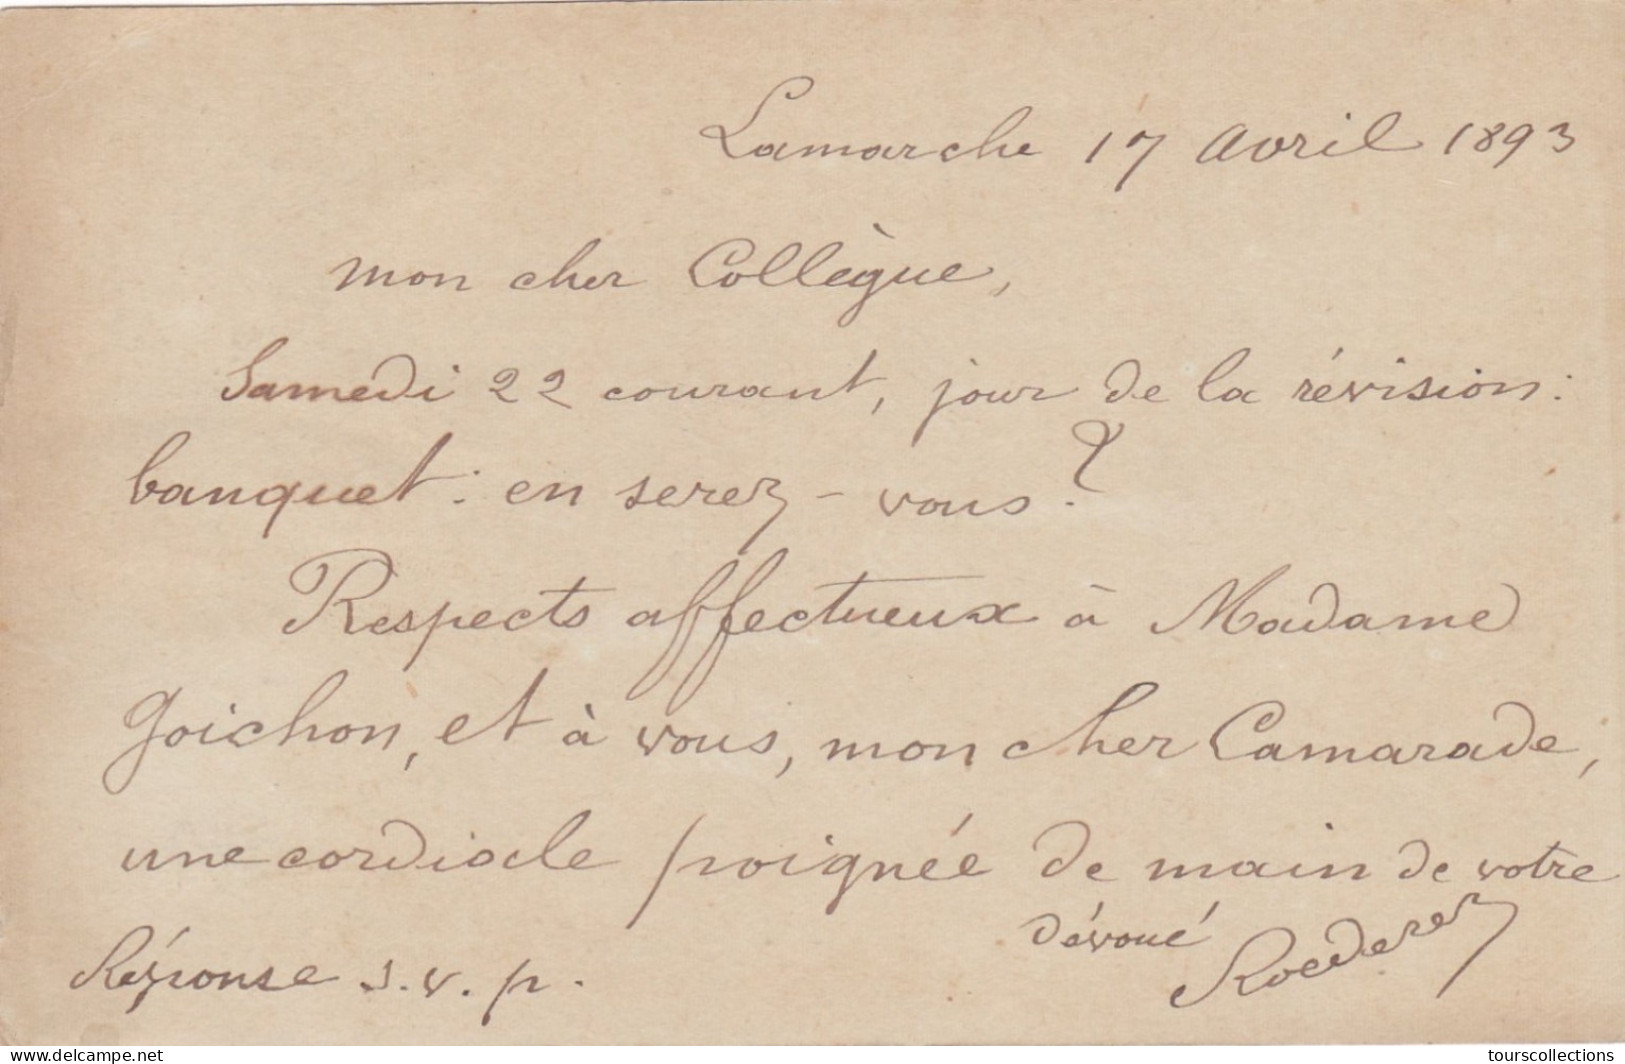 Lamarche 17 Avril 1893
mon cher Collègue,
Samedi 22 courant, jour de la révision :
banquet : en serez-vous ?
Respects affectueux à Madame
Goichon, et à vous, mon cher Camarade,
une cordiale poignée de main de votre
dévoué Roederer
Réponse s.v.p.
www.delcampe.net
tourscollections